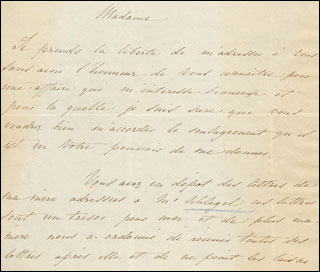 Madame
Je prends la liberté de m'adresser à vous
sans avoir l'honneur de vous connoitre pour
une affaire qui m'interesse beaucoup et
pour la quelle je suis sure que vous
voudrez bien m'accorder le soulagement qu'il
est en votre pouvoir de me donner.
Vous avez en dépot des lettres de
ma mère adressées a Mr Schlegel, ces lettres
sont un trésor pour moi et de plus ma
mère nous a ordonné de reunir toutes ses
lettres après elle et de ne point les laisser